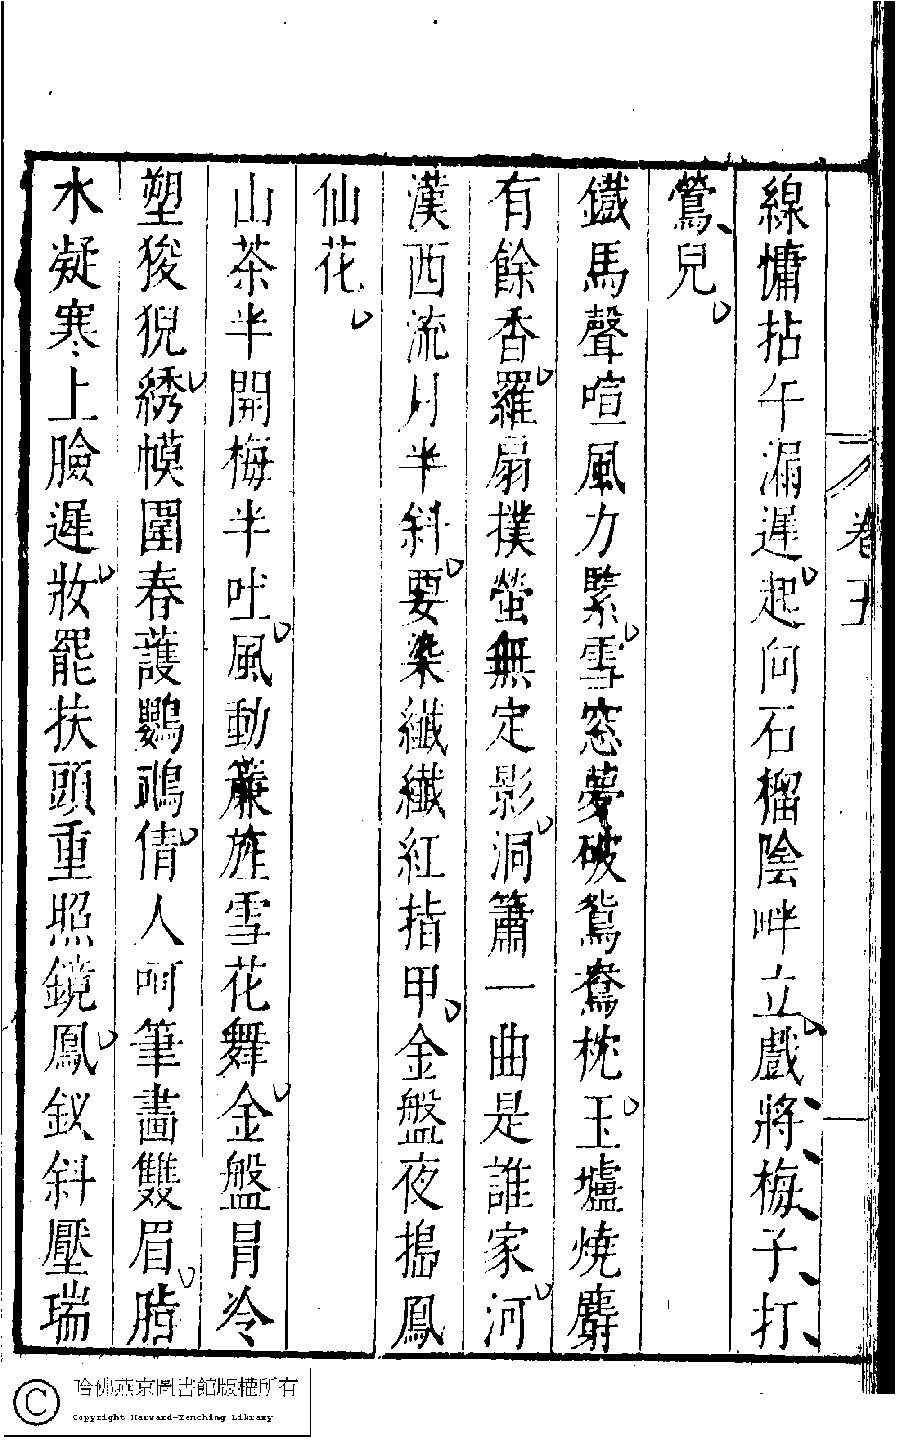 線慵拈午漏遲起向石榴陰畔立戲將梅子打
鶯兒
鐡馬聲喧風力緊雪窓夢破鴛鴦枕玉壚燒麝
有餘香羅扇撲螢無定影洞簫一曲是誰家河
漢西流月半斜要染纖纖紅指甲金盤夜搗鳳
仙花
山茶半開梅半吐風動簾旌雪花舞金盤冐冷
塑狻猊綉幙圍春護鸚鵡倩人呵筆畵雙眉脂
水凝寒上臉遲妝罷扶頭重照鏡鳳釵斜壓瑞
卷五
哈佛燕京圖書館版權所有
Copyright Harvard-Yenching Library